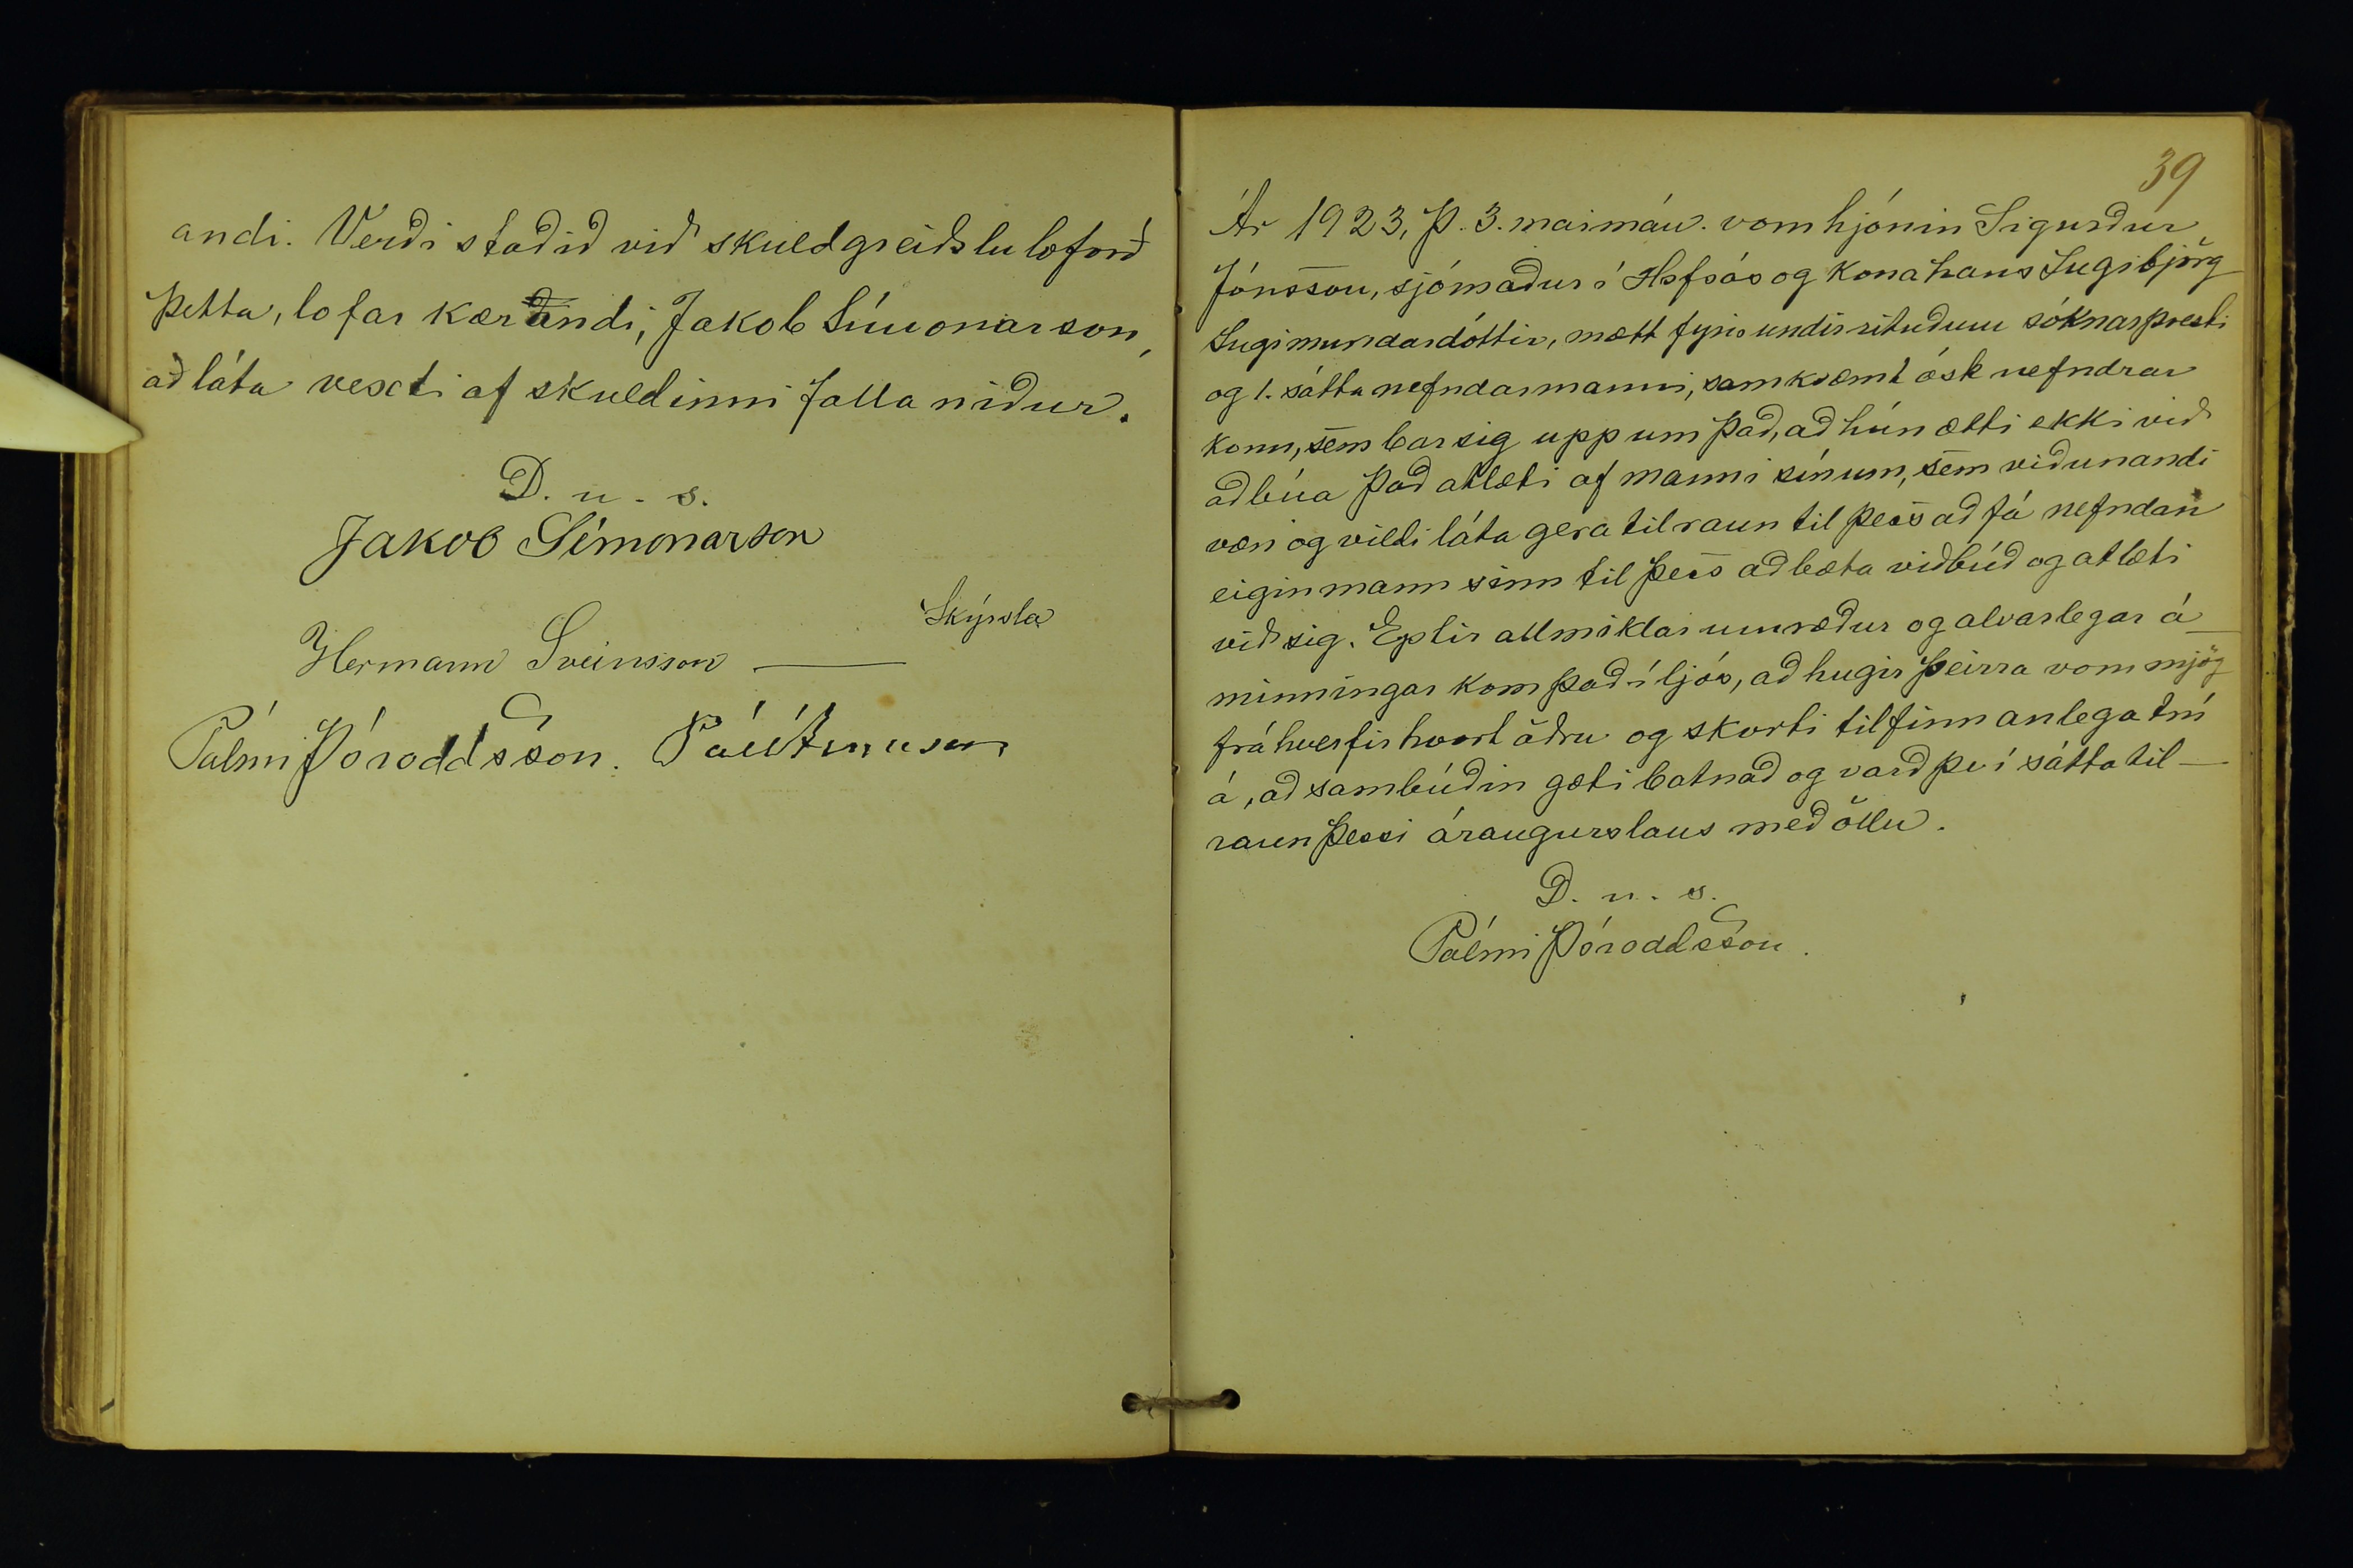 andi. Verði staðið við skuldgreiðsluloforð
þetta, lofar kærandi, Jakob Símonarson,
að láta vexti af skuldinni falla niður.
D. u. s.
Jakob Símonarson
Skýrsla
Hermann Sveinsson
Pálmi Þóroddsson. Páll
39
Ár 1923, þ. 3. maimán. voru hjónin Sigurður
Jónsson, sjómaður í Hofsós og kona hans Ingibjörg
Ingimundardóttir, mætt fyrir undirrituðum sóknarpresti
og 1. sáttanefndarmanni, samkvæmt ósk nefndrar
konu, sem bar sig upp um það, að hún ætti ekki við
að búa það atlæti af manni sínum, sem viðunandi
væri og vildi láta gera tilraun til þess að fá nefndan
eiginmann sinn til þess að bæta viðbúð og atlæti
við sig. Eptir allmiklar umræður og alvarlegar á-
minningar kom það í ljós, að hugir þeirra voru mjög
fráhverfir hvort öðru og skorti tilfinnanlega trú
á, að sambúðin gæti batnað og varð því sáttatil-
raun þessi árangurslaus með öllu.
D. u. s.
Pálmi Þóroddsson.